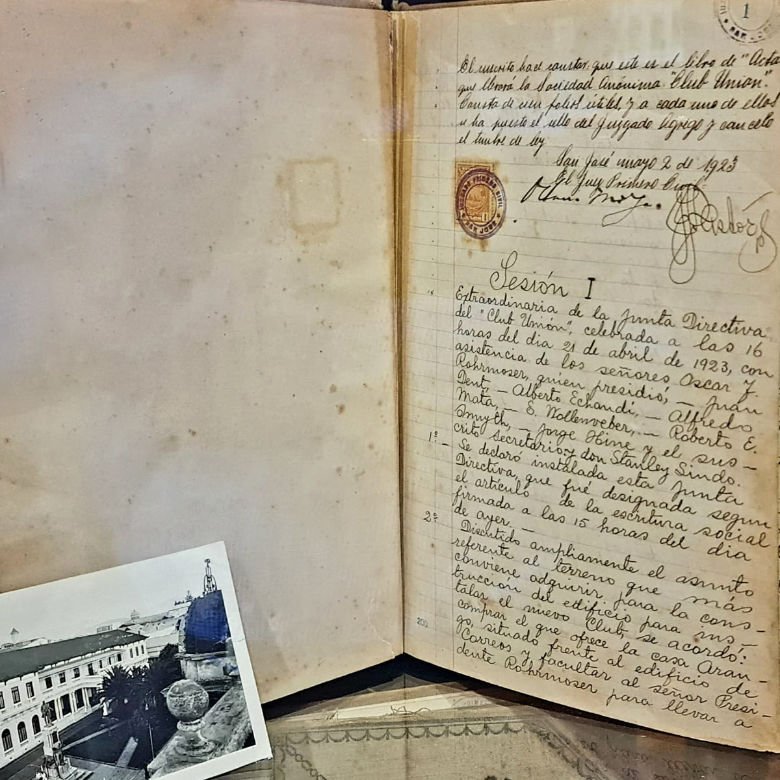 1
El suscrito hace constar que este es el libro de "Acta
que llevará la Sociedad Anónima "Club Union".
Consta de cien folios útiles, y a cada uno de ellos
se ha puesto el sello del Juzgado. Agrego y cancelo
el timbre de ley
San José mayo 2 de 1923
El Juez Primero Civil
JUZGADO PRIMERO CIVIL
SAN JOSE
Sesión I
Extraordinaria de la Junta Directiva
del "Club Unión", celebrada a las 16
horas del dia 21 de abril de 1923, con
asistencia de los señores Oscar
Rohrmoser, quien presidio, — Juan
Dent, — Alberto Echandi, — Alfredo
Mata, — E. Wollenweber, — Roberto E.
Smyth, — Jorge Hine y el sus-
crito Secretario, don Stanley Lindo.
1º — Se declaró instalada esta Junta
Directiva, que fué designada segun
el artículo de la escritura social
firmada a las 15 horas del dia
de ayer. —
2º Discutido ampliamente el asunto
referente al terreno que más
conviene adquirir para la cons-
trucción del edificio para ins-
talar el nuevo Club, se acordó:
comprar el que ofrece la casa Aran-
go, situado frente al edificio de
Correos y facultar al señor Presi-
dente Rohrmoser para llevar a
200